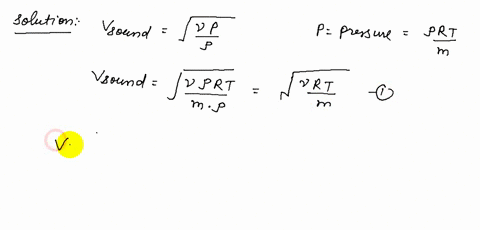 Solution:- Vsound = √(νP/ρ) P = pressure = ρRT/m
Vsound = √(νρRT/m·ρ) = √(νRT/m) -①
V